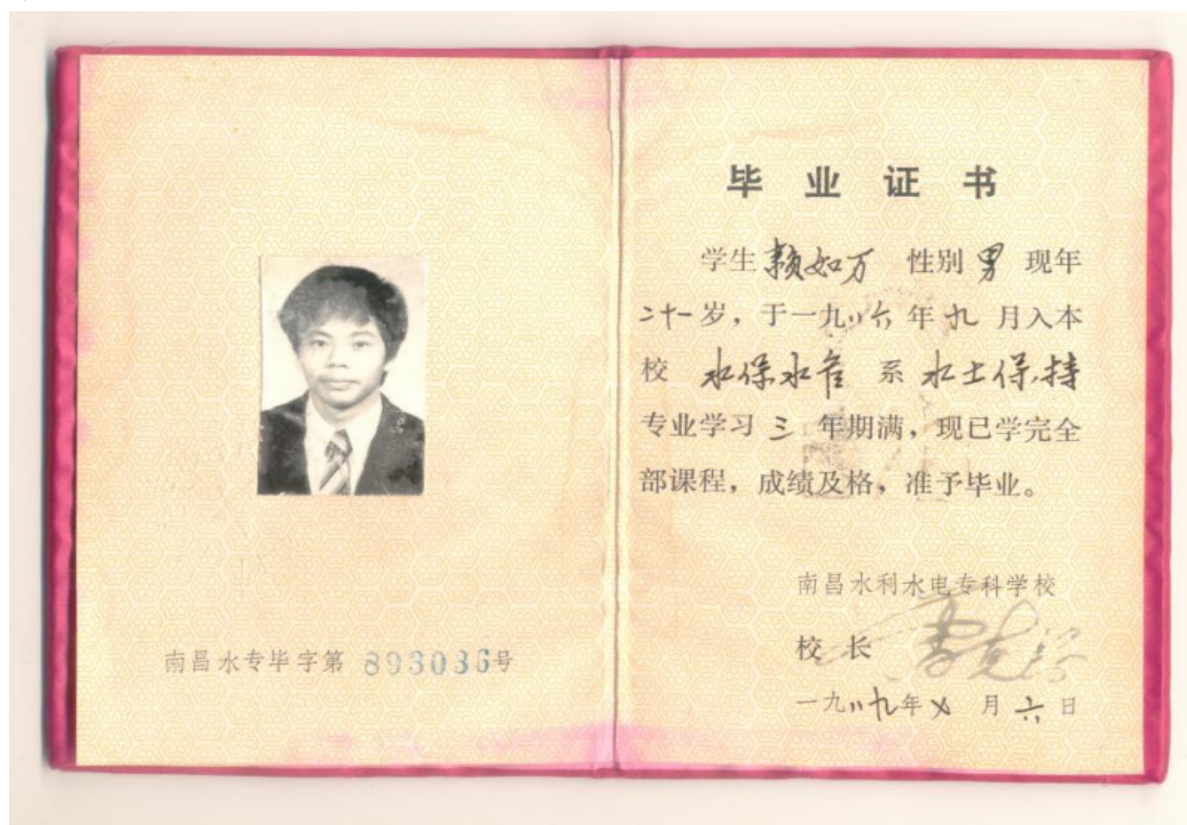 南昌水专毕字第 893036号
毕业证书
学生 赖如万 性别 男 现年
二十一岁，于一九八六年九月入本
校 水保水产 系 水土保持
专业学习 三 年期满，现已学完全
部课程，成绩及格，准予毕业。
南昌水利水电专科学校
校长
一九八九年 月六日